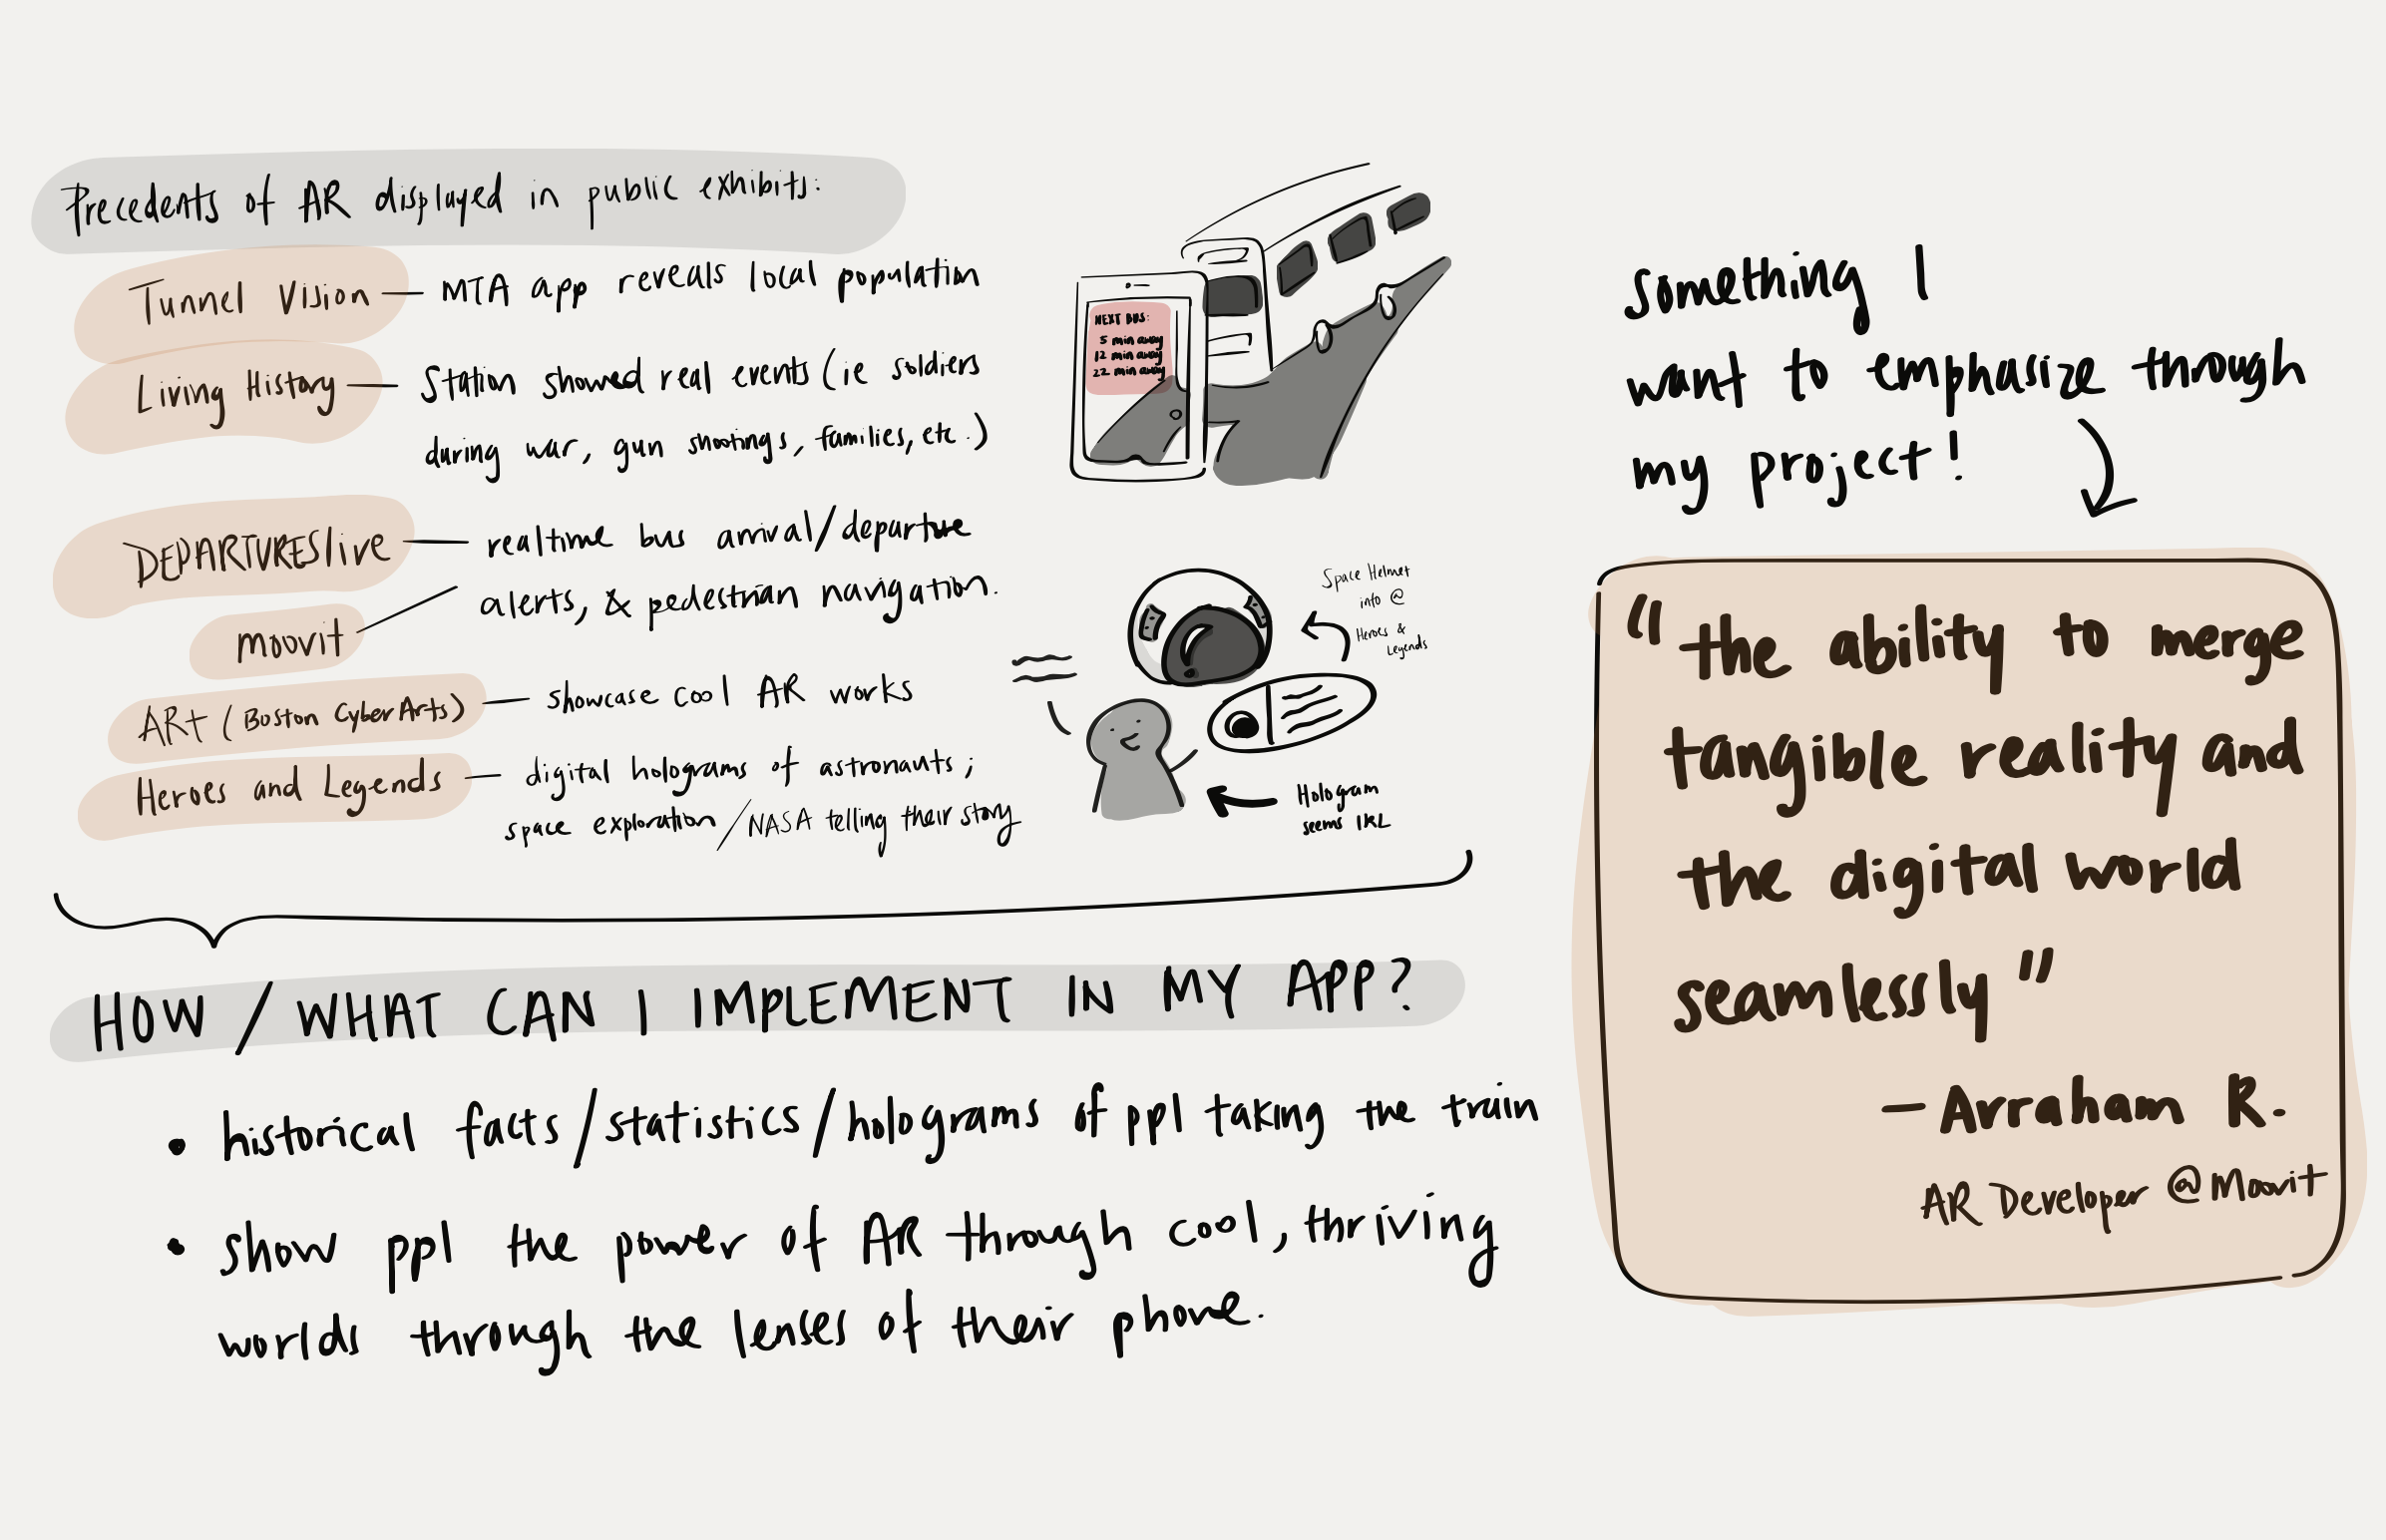 Precedents of AR displayed in public exhibits:
Tunnel Vision — MTA app reveals local population
Living History — Station showed real events (ie soldiers
during war, gun shootings, families, etc.)
DEPARTURESlive — realtime bus arrival/departure
alerts, & pedestrian navigation.
moovit
ARt (Boston CyberArts) — showcase cool AR works
Heroes and Legends — digital holograms of astronauts;
space exploration/NASA telling their story
NEXT BUS:
5 min away
12 min away
22 min away
Space Helmet
info @
Heroes &
Legends
Hologram
seems IRL
HOW / WHAT CAN I IMPLEMENT IN MY APP?
• historical facts/statistics/holograms of ppl taking the train
• show ppl the power of AR through cool, thriving
worlds through the lenses of their phone.
something I
want to emphasize through
my project!
"the ability to merge
tangible reality and
the digital world
seamlessly"
— Avraham R.
AR Developer @Moovit